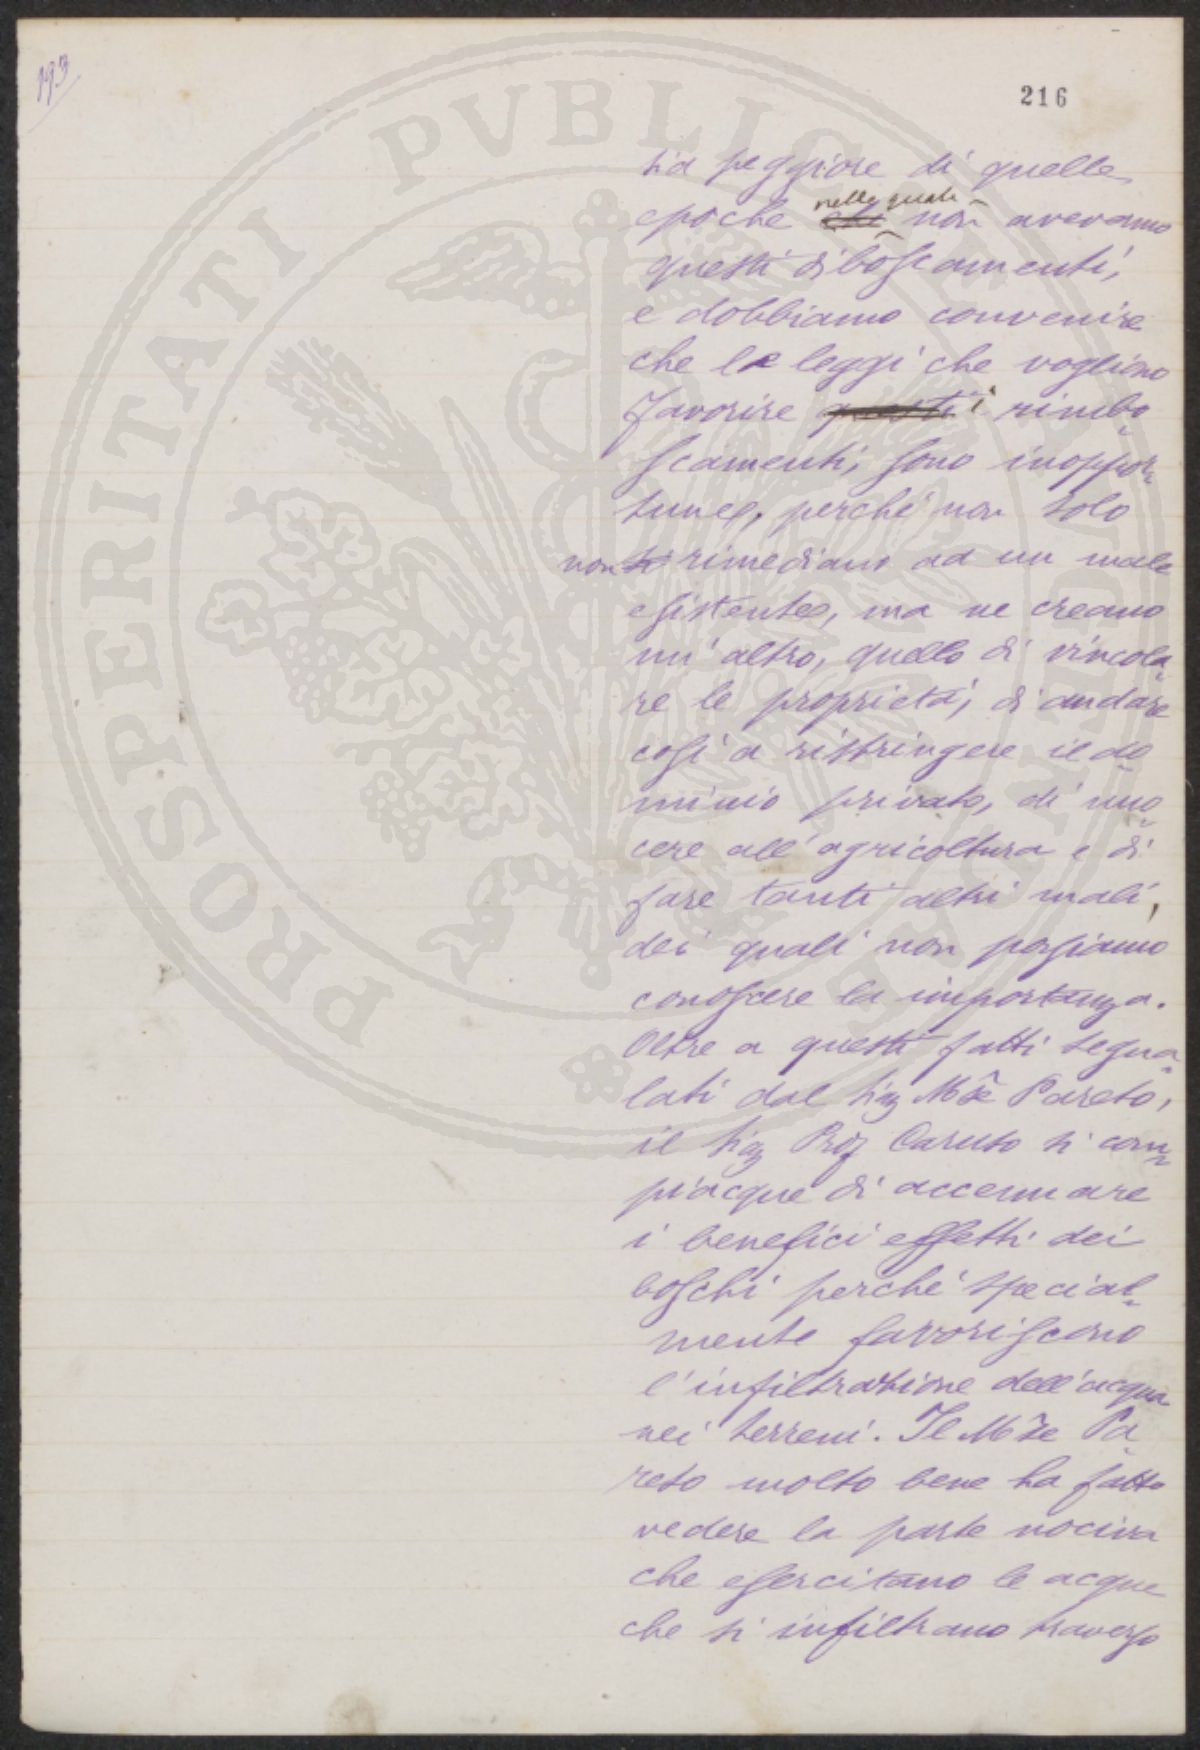 193
216
sia peggiore di quelle
epoche che nelle quali non avevamo
questi diboscamenti,
e dobbiamo convenire
che le leggi che vogliono
favorire questi i rimbo
scamenti, sono inoppor
tune, perché non solo
non si rimediano ad un male
esistente, ma ne creano
un' altro, quello di vincola
re le proprietà, di andare
così a ristringere il do
minio privato, di nuo
cere all'agricoltura e di
fare tanti altri mali,
dei quali non possiamo
conoscere la importanza.
Oltre a questi fatti segna
lati dal Sig Mse Pareto,
il Sig Prof Caruso si com
piacque di accennare
i benefici effetti dei
boschi perché special
mente favoriscono
l'infiltrazione dell'acqua
nei terreni. Il Mse Pa
reto molto bene ha fatto
vedere la parte nociva
che esercitano le acque
che si infiltrano traverso
PROSPERITATI PVBLICAE